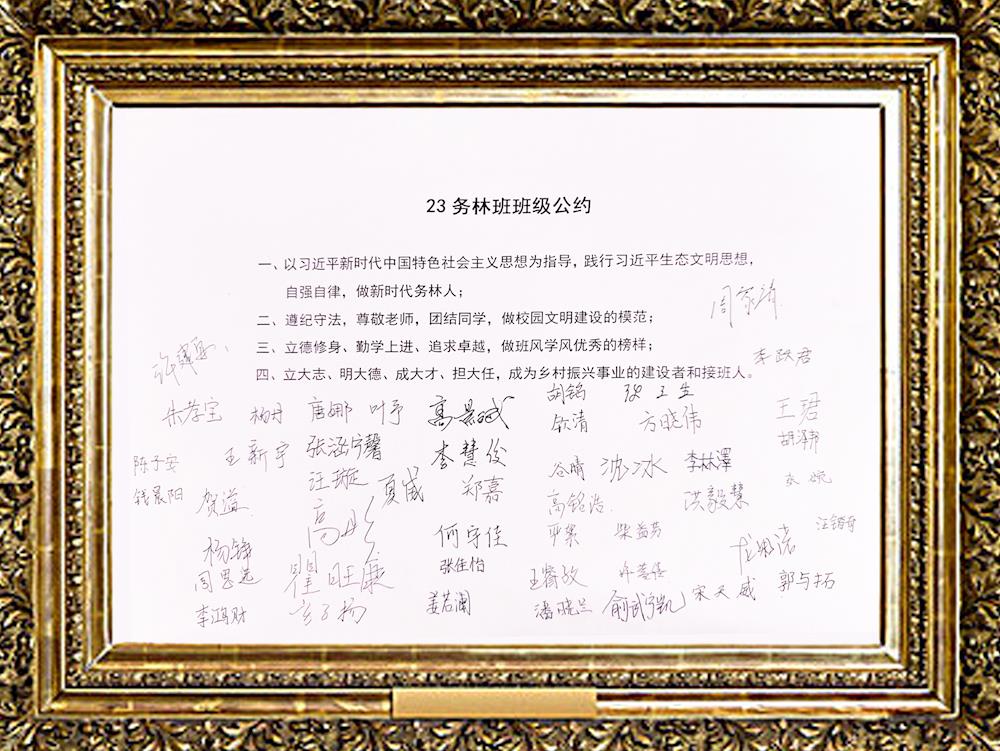 23 务林班班级公约
一、以习近平新时代中国特色社会主义思想为指导，践行习近平生态文明思想，
自强自律，做新时代务林人；
二、遵纪守法，尊敬老师，团结同学，做校园文明建设的模范；
三、立德修身、勤学上进、追求卓越，做班风学风优秀的榜样；
四、立大志、明大德、成大才、担大任，成为乡村振兴事业的建设者和接班人。
胡铭
朱孝宝 杨丹 唐娜 叶予 高景成 钦清 方晓伟 王珺
陈子安 王新宇 张涵宁馨 李慧俊 谷晴 沈冰 李林澤 胡泽邦
钱晨阳 贺溢 汪璇 夏威 郑嘉 高铭浩 洪毅慧
杨铮 何守佳 柴益芬
周思远 瞿旺康 张佳怡 王睿政
李鸿财 姜若澜 潘晓兰 俞武宁凯 宋天威 郭与拓